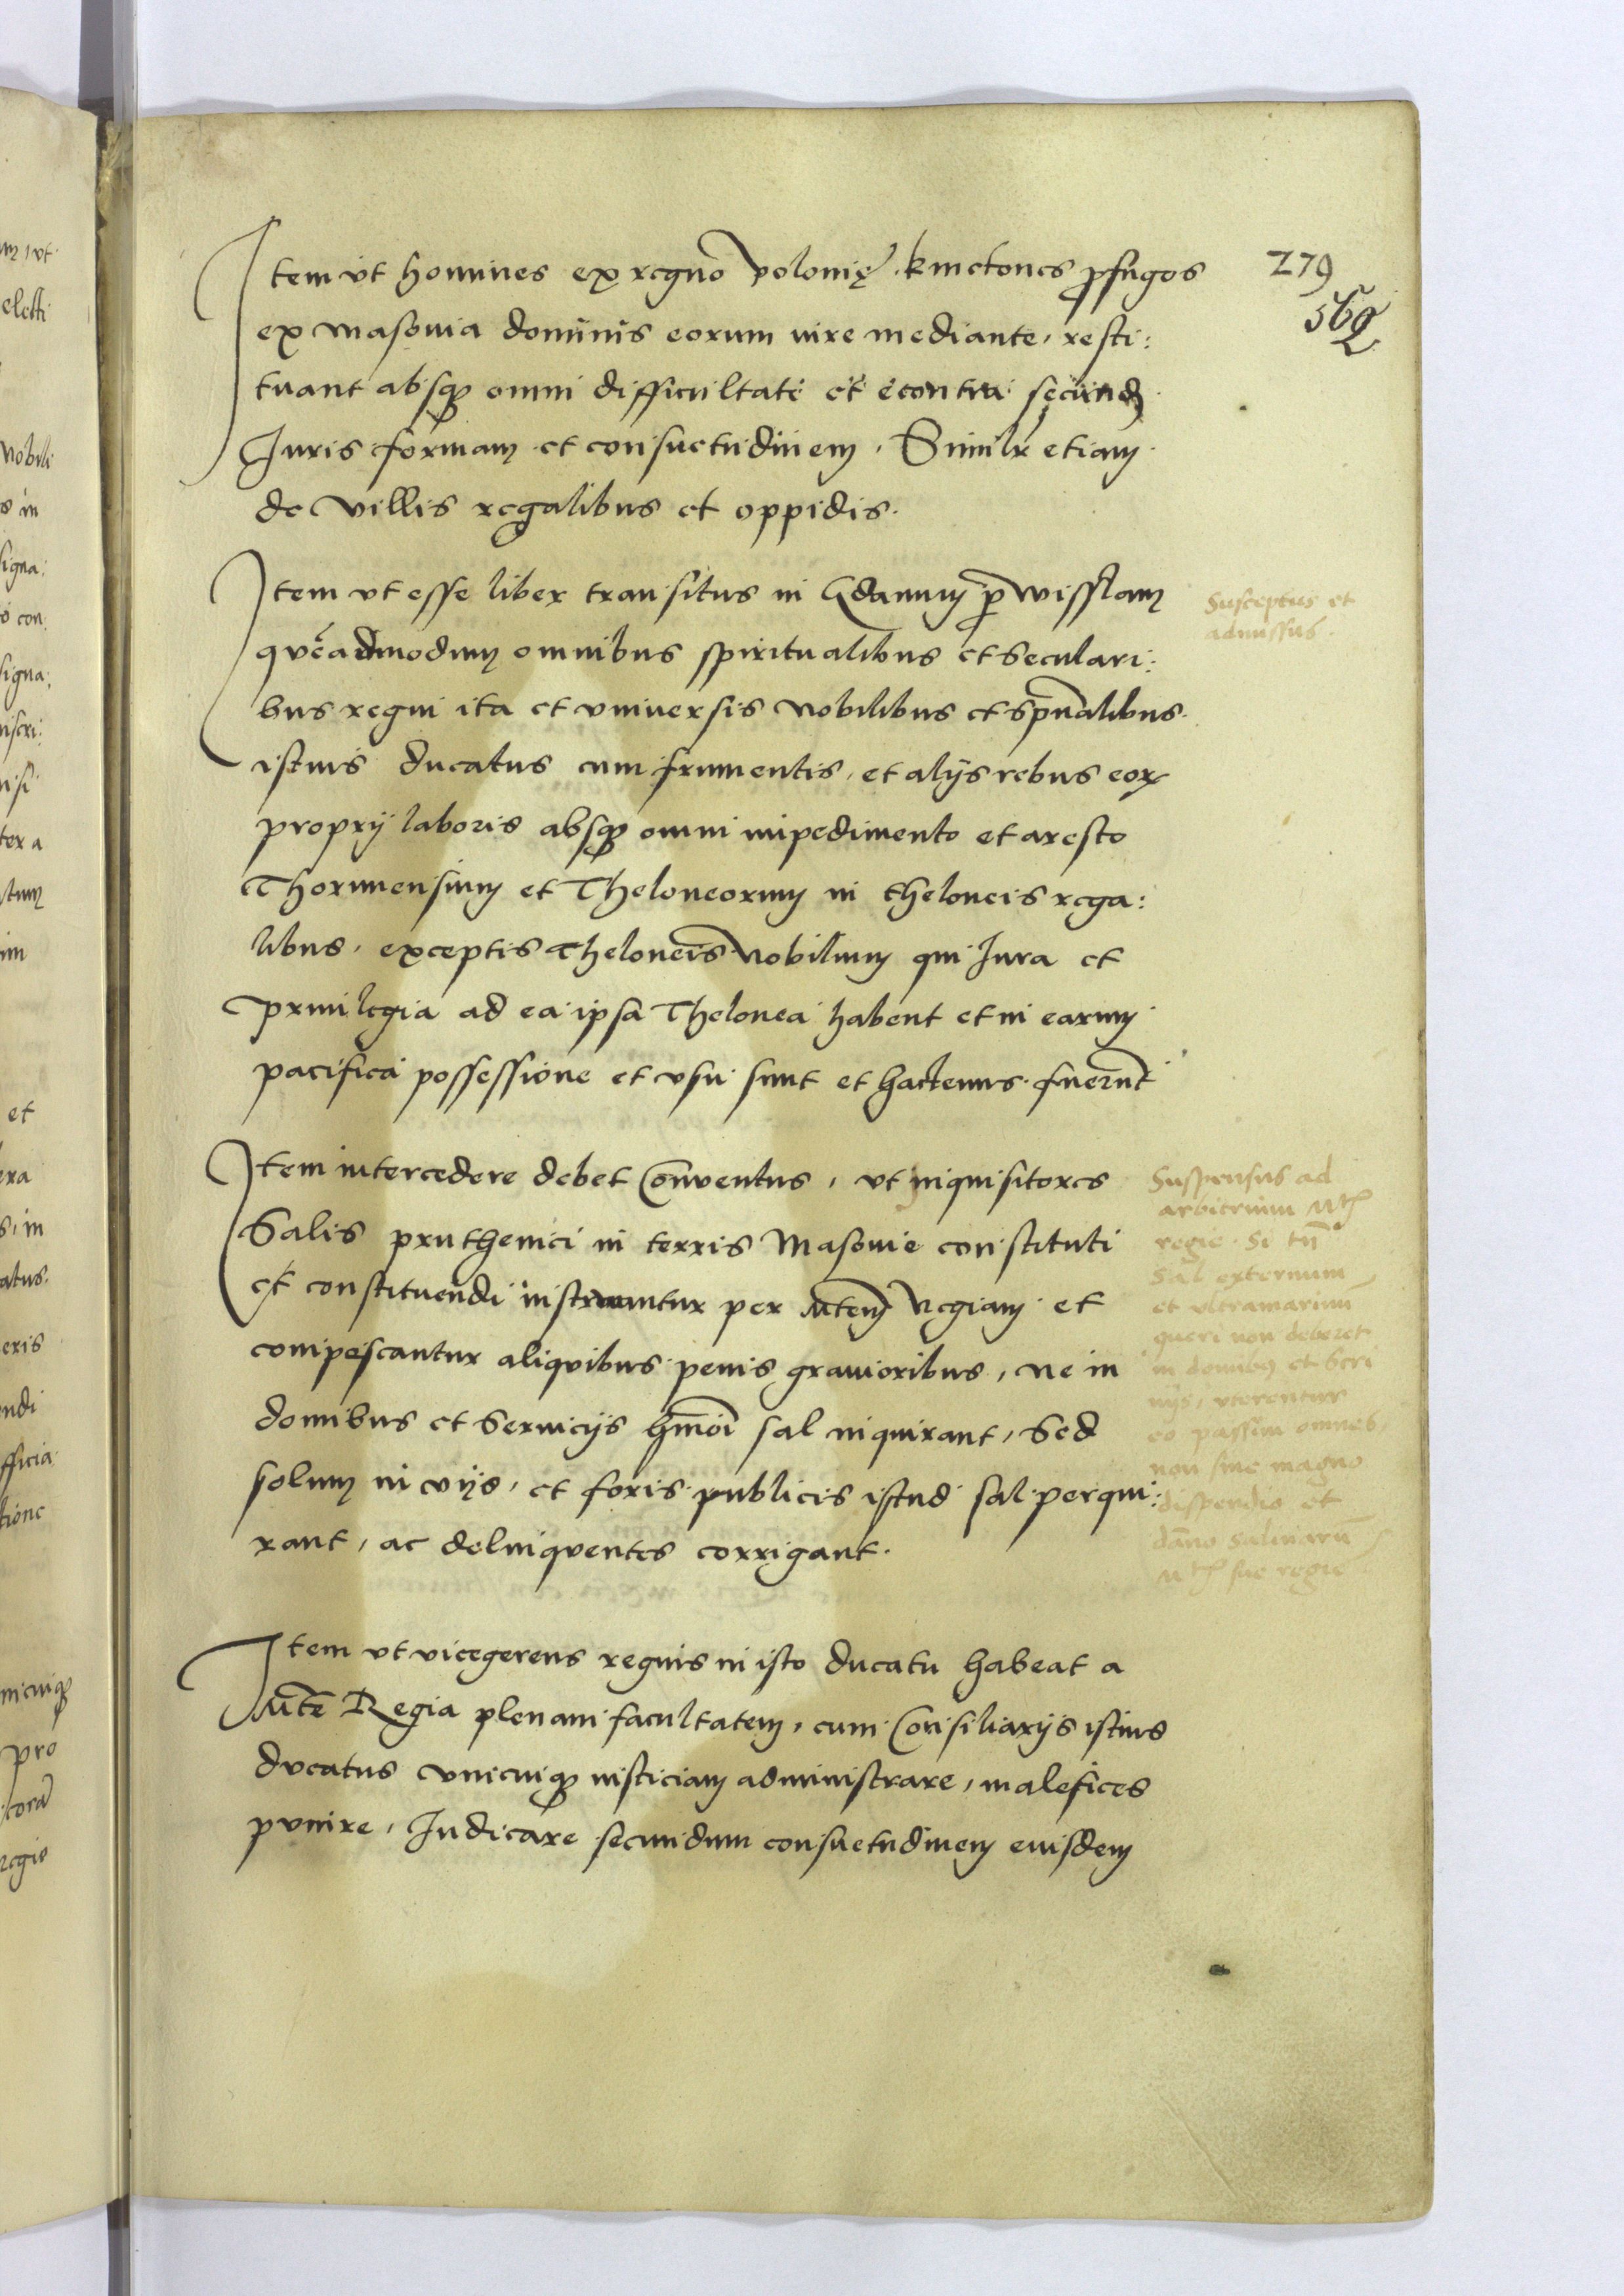 279
569
Item vt homines ex regno Polonię kmetones ꝓfugos
ex Masouia dominis eorum iure mediante, resti:
tuant absqꝫ omni difficultate et econtra secundꝫ
Iuris formam et consuetudinem, Similr etiam
de villis regalibus et oppidis.
Item vt esse liber transitus in Gdanum ꝑ wisslam
quēadmodum omnibus spiritualibus et Seculari:
bus regni ita et vniuersis Nobilibus et spūalibus
istius ducatus cum frumentis, et alijs rebus eoꝝ
proprij laboris absqꝫ omni impedimento et aresto
Thorunensium et Theloneorum in theloneis rega:
libus, exceptis Theloneis Nobilium qui Iura et
priuilegia ad ea ipsa Thelonea habent et in earum
pacifica possessione et vsu sunt et hactenus fuerunt
Susceptus et
admissus.
Item intercedere debet Conuentus, vt inquisitores
Salis pruthenici in terris Masouie constituti
et constituendi instruantur per Mtem Regiam et
compescantur aliquibus penis grauioribus, ne in
domibus et Seruicijs hmōi sal inquirant, Sed
solum in vijs, et foris publicis istud sal perqui:
rant, ac delinquentes corrigant.
Suspensus ad
arbitrium Mtis
regie. Si tn̄
Sal externum
et vltramarinum
queri non deberet
in domibꝫ et Scri
nijs, vterentur
eo passim omnes
non sine magno
dispendio et
dāno salinarū
Mtis sue regie
Item vt vicegerens regius in isto ducatu habeat a
Mte Regia plenam facultatem, cum Consiliarijs istius
ducatus vnicuiqꝫ iusticiam administrare, malefices
punire, Iudicare secundum consuetudinem euisdem